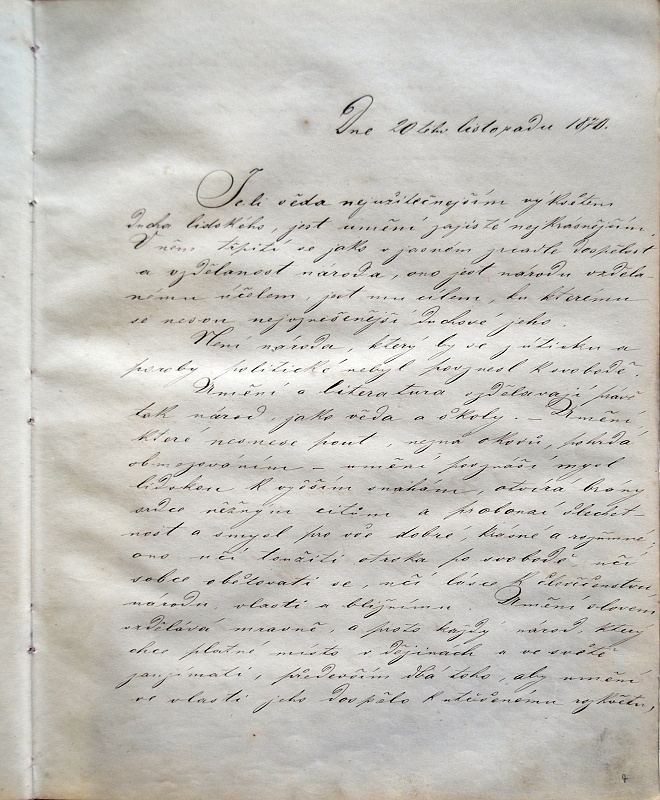 Dne 20tého listopadu 1870.
Jeli věda nejužitečnejším výkvětem
ducha lidského, jest umění zajisté nejkrásnějším.
V něm třpití se jako v jasném zrcadle dospělost
a vzdělanost národa, ono jest národu vzděla-
nému účelem, jest mu cílem, ku kteremu
se nesou nejvznešenější duchové jeho.
Není národa, který by se z útisku a
poroby politické nebyl povznesl k svobodě.
Umění a literatura vzdělavají právě
tak národ, jako věda a školy. – Umění,
které nesnese pout, nezná okovů, pohrdá
obmezováním – umění povznáší mysl
lidskou k vyšším snahám, otvírá brány
srdce něžným citům a probouzí šlechet-
nost a smysl pro vše dobré, krásné a rozumné;
ono učí toužiti otroka po svobodě učí
sobce obětovati se, učí lásce k člověčenstvu,
národu, vlasti a bližnímu. Umění slovem
vzdělává mravně, a proto každý národ, který
chce platné místo v dějinách a ve světě
zaujímati, především dbá toho, aby umění
ve vlasti jeho dospělo k utěšenému rozkvětu,